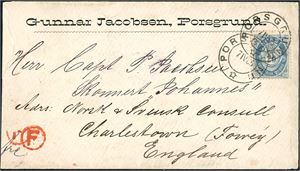 Gunnar Jacobsen, Porsgrund.
PORSGR
Herr Capt. P. Jacobsen
Skonnert "Johannes"
Adr: Norsk & Svensk Consull
Charlestown (Fowey)
England
F